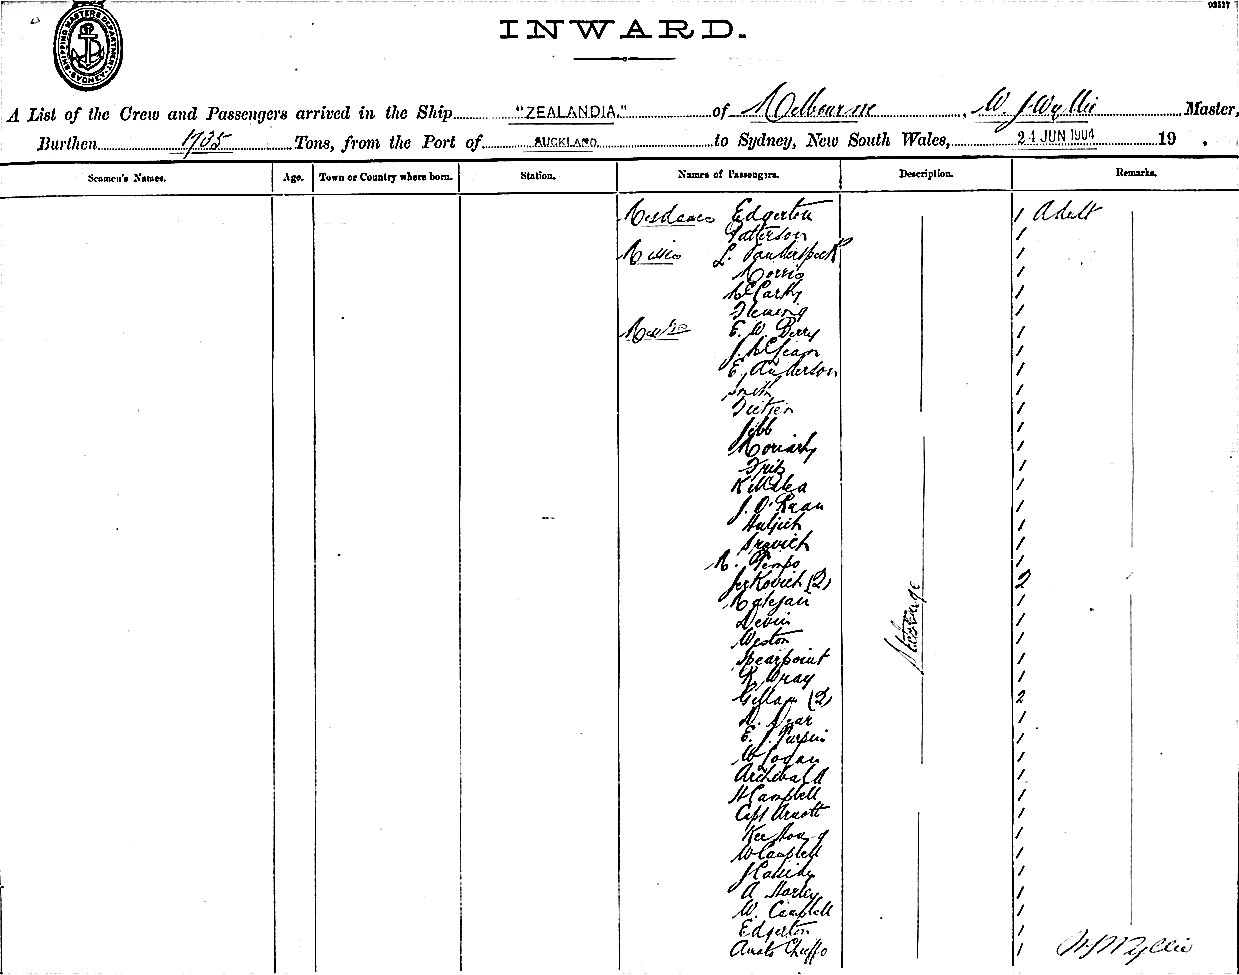 93527
SHIPPING MASTERS DEPARTMENT SYDNEY
INWARD.
A List of the Crew and Passengers arrived in the Ship "ZEALANDIA." of Melbourne, W. J Wyllie Master,
Burthen 1735 Tons, from the Port of AUCKLAND to Sydney, New South Wales, 24 JUN 1904 19 .
Seamen's Names. Age. Town or Country where born. Station. Names of Passengers. Description. Remarks.
Mesdames Edgerton 1 Adult
Patterson 1
Misses L. 1
Morris 1
McCarthy 1
Fleming 1
E. W. Berry 1
J. McLean 1
E. Anderson 1
Smith 1
1
Jibb 1
Moriarty 1
Fritz 1
1
J. O'Regan 1
1
1
M. 1
Jerkovich (2) 2
1
Devin 1
Weston 1
Spearpoint 1
K. Wray 1
Gillan (2) 2
1
E. J. 1
W Logan 1
Archibald 1
H Campbell 1
Capt Arnott 1
1
W Campbell 1
J Cassidy 1
A Harley 1
W. Campbell 1
Edgerton 1
1
Steerage
W J Wyllie